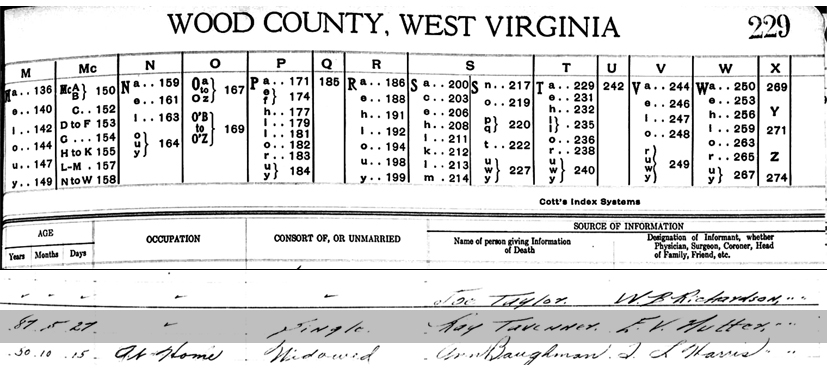 WOOD COUNTY, WEST VIRGINIA 229
M Mc N O P Q R S T U V W X
Ma.. 136 McA B} 150 Na.. 159 Oa to Oz} 167 Pa.. 171 185 Ra.. 186 Sa.. 200 Sn.. 217 Ta.. 229 242 Va.. 244 Wa.. 250 269
e.. 140 C... 152 e.. 161 e f} 174 e.. 188 c.. 203 o.. 219 e.. 231 e.. 246 e.. 253 Y
i.. 142 D to F 153 i.. 163 O'B to O'Z} 169 h.. 177 h.. 191 e.. 206 p q} 220 h.. 232 i.. 247 h.. 256 271
o.. 144 G.... 154 o u y} 164 i.. 179 i.. 192 h.. 208 t.. 222 i l} 235 o.. 248 i.. 259 Z
u.. 147 H to K 155 l.. 181 o.. 194 i.. 211 u w y} 227 o.. 236 r u w y} 249 o.. 263 274
y.. 149 L-M . 157 o.. 182 u.. 198 k.. 212 r.. 238 r.. 265
N to W 158 r.. 183 y.. 199 l.. 213 u w y} 240 u y} 267
u y} 184 m. 214
Cott's Index Systems
AGE OCCUPATION CONSORT OF, OR UNMARRIED SOURCE OF INFORMATION
Years Months Days Name of person giving Information of Death Designation of Informant, whether Physician, Surgeon, Coroner, Head of Family, Friend, etc.
" " Joe Taylor. W. B. Richardson, "
87. 5 27 " Single. Kay Tavenner. E. V. Hutter, "
50. 10 . 15 At Home Widowed Ann Baughman. I. L. Harris "